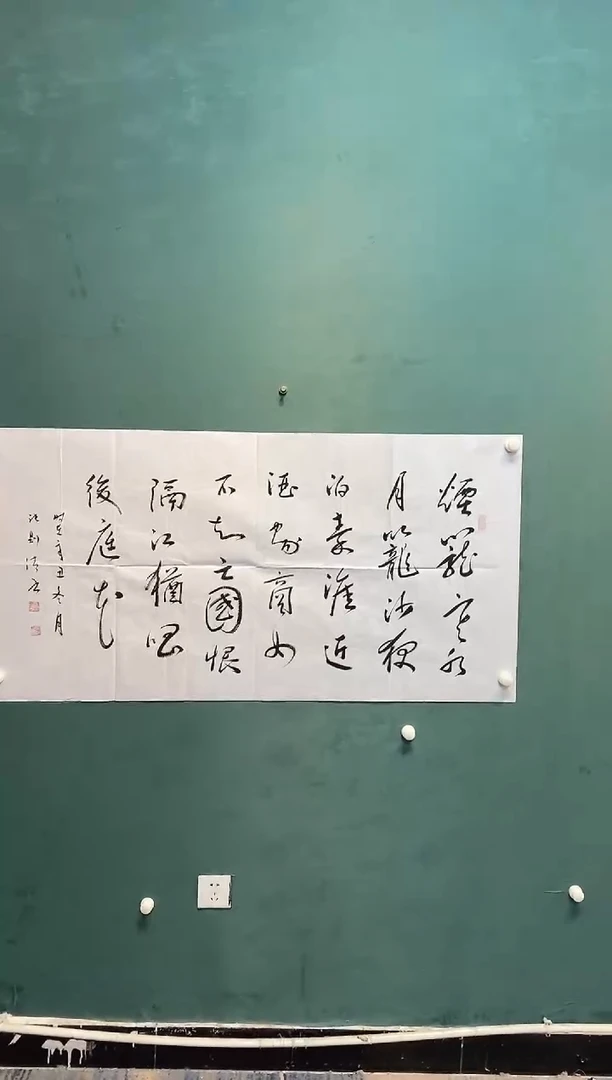 煙籠寒水
月籠沙夜
泊秦淮近
酒家商女
不知亡國恨
隔江猶唱
後庭花
时在辛丑冬月